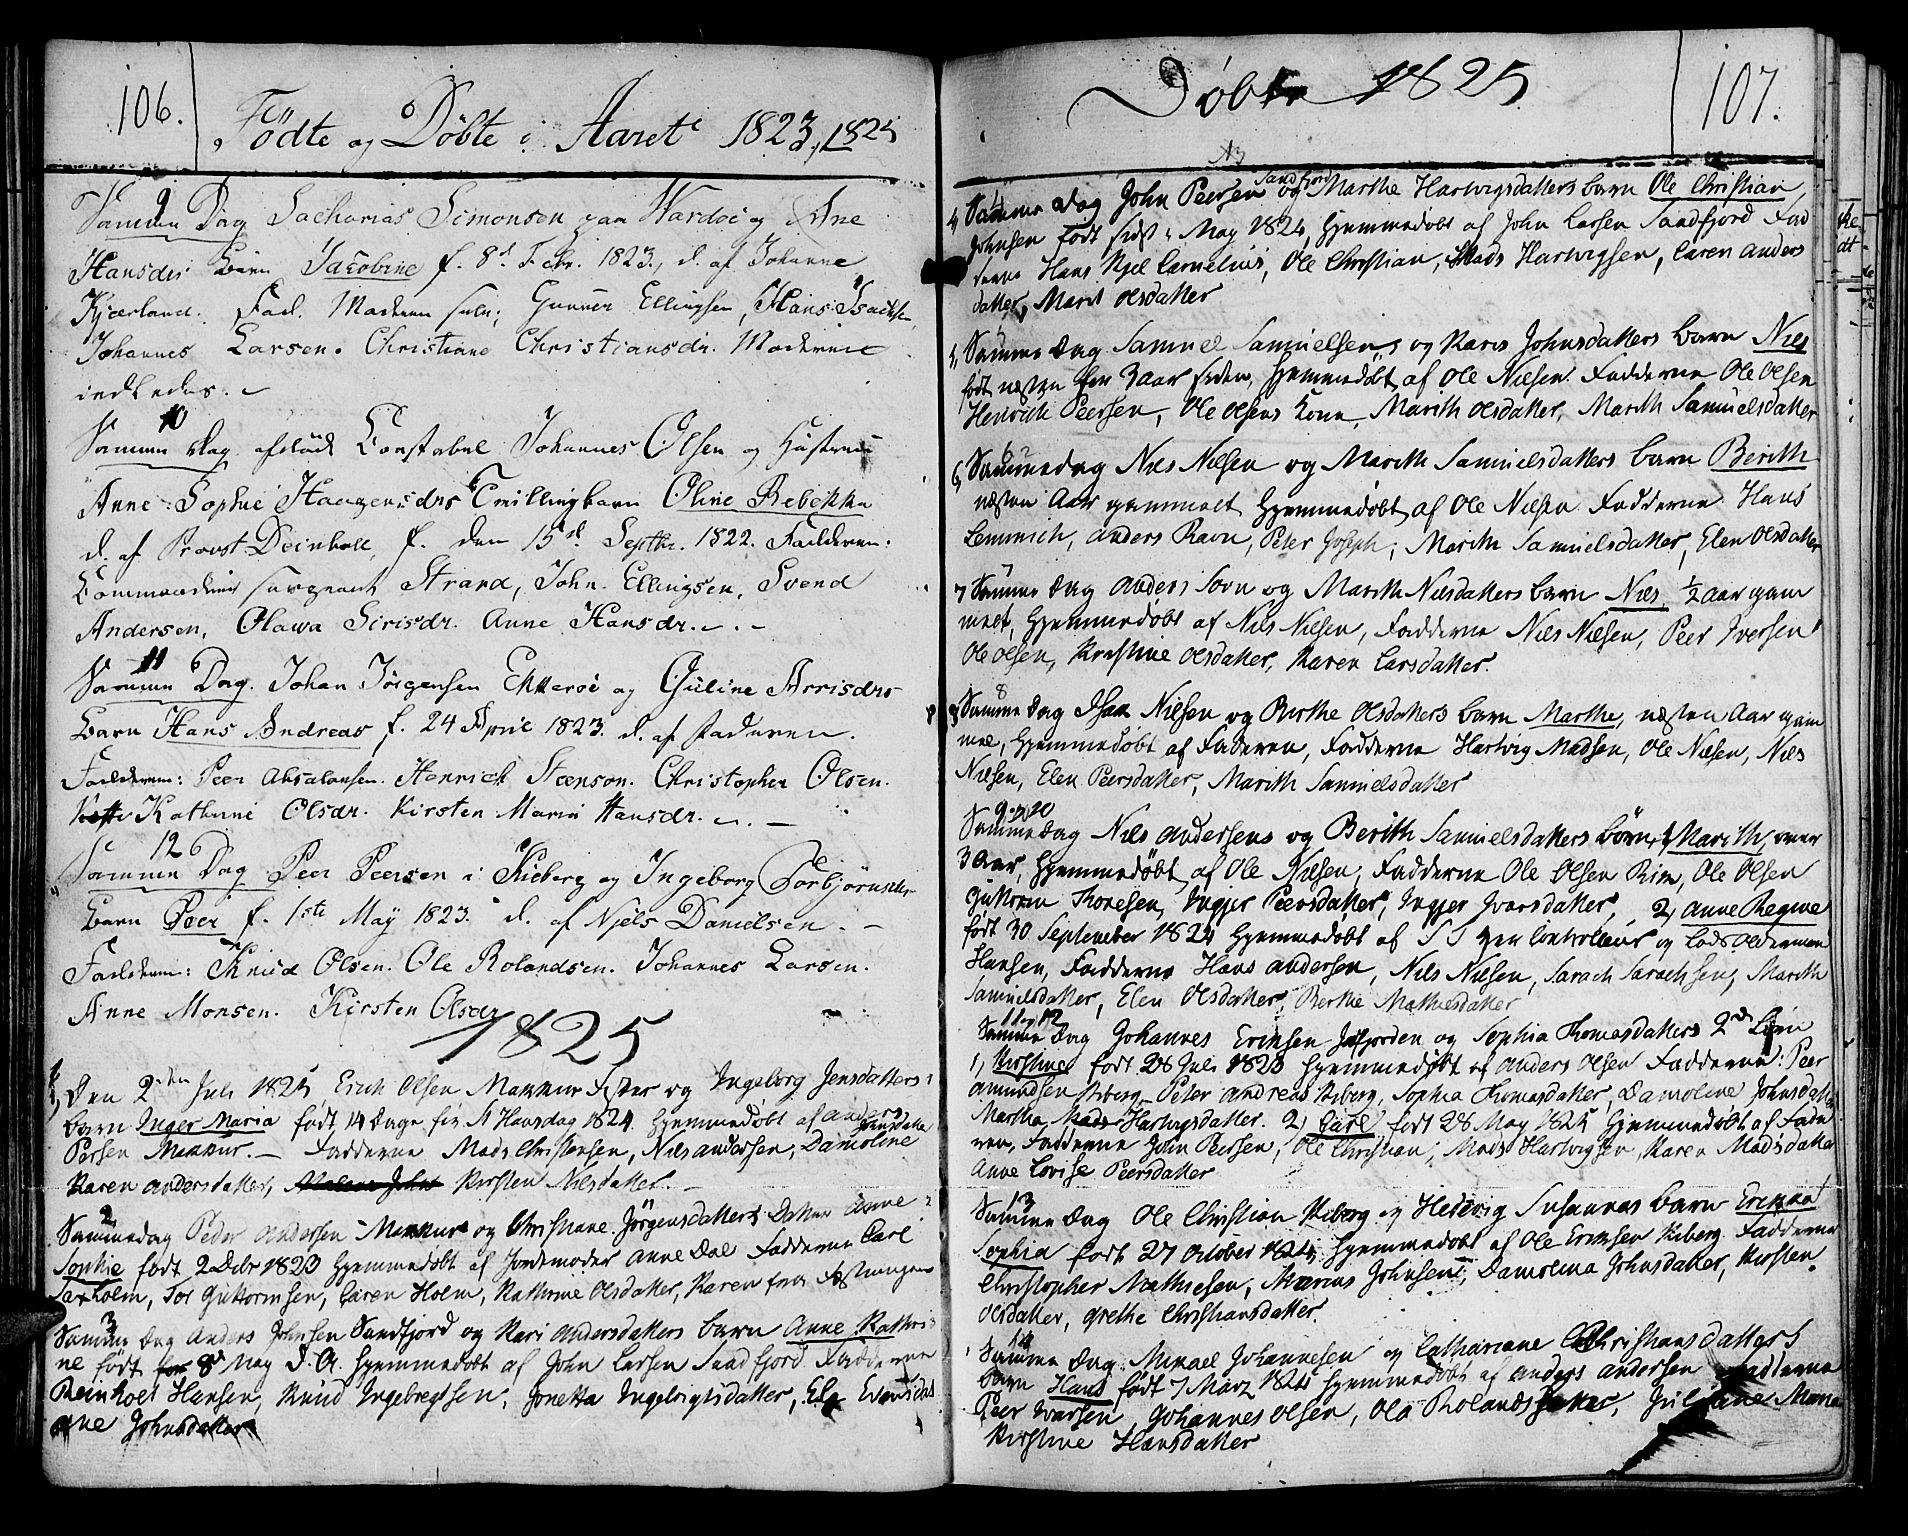 106.
Födte og Döbte i Aaret 1823, 1825
9
Samme Dag Zacharias Simonsen paa Wardöe og Ane
Hansdrs Barn Jacobine f. 8d. Febr. 1823. d. af Johanne
Kjærland. Fad. Moderen selv, Gunner Ellingsen, Hans Isachsen
Johannes Larsen. Christiane Christiansdr. Moderen
indledes.
10
Samme Dag Constabel Johannes Olsen og Hustrue
Anne Sophie Haagensdrs Tvillingbarn Oline Rebekka
d. af Provst Deinboll, f. den 15d Septbr. 1822. Fadderne:
Commandeer Sergeant Strand, John Ellingsen, Svend
Andersen, Olawa Sirisdr. Anne Hansdr.
11
Samme Dag. Johan Jörgensen Ekkeröe og Guline Arrisdrs
Barn Hans Andreas f. 24 April 1823. d. af Faderen.
Fadderne: Peer Absalonsen. Henrich Steenson. Christopher Olsen.
Kathrine Olsdr. Kirsten Maria Hansdr.
12
Samme Dag Peer Peersen i Kieberg og Ingeborg Torbjörnsdr
Barn Peer f. 1ste May 1823. d. af Njels Danielsen.
Fadderne: Knud Olsen. Ole Rolandsen. Johannes Larsen.
Anne Monsen. Kirsten Olsdr
1825
1, Den 2den Juli 1825 Erich Olsen Makkur Fister og Ingeborg Jensdatters
barn Inger Maria født 14 Dage før St Hansdag 1824. Hjemmedøbt af anders
Persen Makkur. Fadderne Mads Christensen, Nils andersen, Damoline Hansdatter
Karen andersdatter, Kirsten Nilsdatter.
2
Sammedag Peder andersen Makkur og Christiane Jørgensdatters Datter anne
Sophie født 2 Debr 1823 Hjemmedøbt af Jordemoder anne Dal Fadderne Carl
Saxholm, Tor Guttormsen, Caren Holm, Kathrine Olsdatter, Karen fra Fæstningen
3
Samme Dag anders Johnsen Sandfjord og Kari andersdatters barn Anne Kathri
ne født 8d May D. A. Hjemmedøbt af John Larsen Sandfjord Fadderne
Reinholt Hansen, Knud Ingebregtsen, Jonetta Ingebrigtsdatter, Ele
ane Johnsdatter
Døbte 1825
107.
4, Samme Dag John Peersen Sandfjord og Marthe Hartvigsdatters barn Ole Christian
Johnsen født sidst i May 1824, Hjemmedøbt af John Larsen Sandfjord Fad
derne Hans Kjel Cornelius, Ole Christian, Mads Hartvigsen, Caren anders
datter, Marit Olsdatter
5, Samme Dag Samuel Samuelsens og Karis Johnsdatters barn Niels
født næsten for 3 aar siden, Hjemmedøbt af Ole Nielsen. Fadderne Ole Olsen
Henrich Peersen, Ole Olsens Kone, Marith Olsdatter, Marith Samuelsdatter
6, Sammedag Niels Nielsen og Marith Samuelsdatters barn Berith
næsten Aar gammelt Hjemmedøbt af Ole Nielsen Fadderne Hans
Lemmich, anders Ravn, Peter Joseph, Marith Samuelsdatter, Elen Olsdatter
7 Samme Dag anders Sovn og Marith Nielsdatters barn Niels, ½ aar gam
melt, Hjemmedøbt af Niels Nielsen, Fadderne Niels Nielsen, Peer Iversen
Ole Olsen, Kristine Olsdatter, Karen Larsdatter.
8 Samme Dag Isak Nielsen og Birthe Olsdatters barn Marthe, næsten Aar gam
mel, Hjemmedøbt af Faderen, Fadderne Hartvig Madsen, Ole Nielsen, Niels
Nielsen, Elen Peersdatter, Marith Samuelsdatter
9 og 10
Samme Dag Niels andersens og Berith Samuelsdatters børn, 1 Marith, over
3 Aar, Hjemmedøbt af Ole Nielsen, Fadderne Ole Olsen Rim, Ole Olsen
Guttorm Thoresen, Ingjer Peersdatter, Ingjer Ivarsdatter, 2, Anne Regine
født 30 September 1824 Hjemmedøbt af Controlleur og Lods Oldermen
Hansen, Fadderne Hans andersen, Niels Nielsen, Sarach Sarachsen, Marith
Samuelsdatter, Elen Olsdatter, Berthe Mathiesdatter
11 og 12
Samme Dag Johannes Eriksen Jafjorden og Sophia Thomasdatters 2de Børn
1, Kirstine født 28 Juli 1823 Hjemmedøbt af anders Olsen Fadderne: Peer
amundsen Kiberg, Peter Andreas Kiberg, Sophia Thomasdatter, Damolene Johnsdatter
Martha Hartvigsdatter. 2, Carl født 28 May 1825 Hjemmedøbt af Fade
ren, Fadderne John Peersen, Ole Christian, Mads Hartvigsen, Karen Madsdatter
Anne Lovise Peersdatter
13
Samme Dag Ole Christian Kiberg og Hedevig Susannas barn Erikka
Sophia født 27 October 1824 Hjemmedøbt af Ole Eriksen Kiberg. Fadderne
Christopher Mathiesen, Marius Johnsen, Damolina Johnsdatter, Kirsten
Olsdatter, Grethe Christiansdatter.
14
Samme Dag, Mikael Johannesen og Cathariane Christiansdatters
barn Hans født 7 Marz 1825 Hjemmedøbt af anders andersen Fadderne
Peer Ivarsen, Johannes Olsen, Ola Rolandsdatter, Juliane Maria
Kirstine Hansdatter